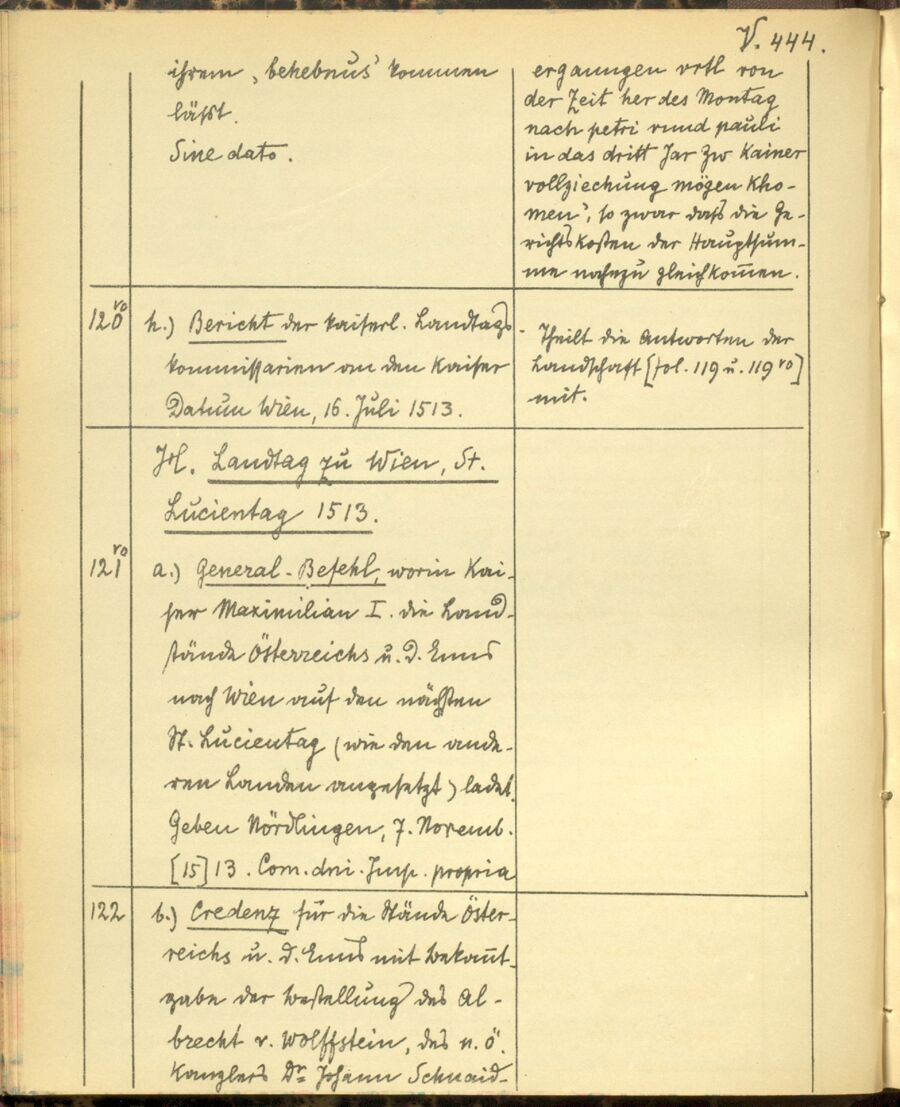 V. 444.
ihrem „behebnus“ kommen
läßt.
Sine dato.
ergangen vrtl von
der Zeit her des Montag
nach petri vnnd pauli
in das dritt Jar zw kainer
vollziechung mögen kho-
men“, so zwar daß die Ge-
richtskosten der Hauptsum-
me nahezu gleichkom̄en.
120 ro
h.) Bericht der kaiserl. Landtags-
kommissarien an den Kaiser
Datum Wien, 16. Juli 1513.
Theilt die Antworten der
Landschaft [fol. 119 u. 119 vo]
mit.
Landtag zu Wien, St.
Lucientag 1513.
121 ro
a.) General-Befehl, worin Kai-
ser Maximilian I. die Land-
stände Österreichs u. d. Enns
nach Wien auf den nächsten
St. Lucientag (wie den ande-
ren Landen angesetzt) ladet.
Geben Nördlingen, 7. Novemb.
[15]13. Com. dni. Imp. propria
122
b.) Credenz für die Stände Öster-
reichs u. d. Enns mit Bekan̄t-
gabe der Bestellung des Al-
brecht v. Wolffstein, des n. ö.
Kanzlers Dr. Johann Schnaid-